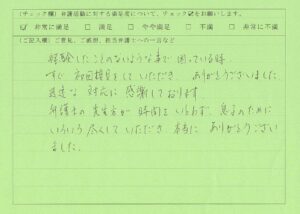 (チェック欄)弁護活動に対する満足度について、チェック☑をお願いします。
☑ 非常に満足 □ 満足 □ やや満足 □ 不満 □ 非常に不満
(ご記入欄)ご意見、ご感想、担当弁護士への一言など
経験したことのないような事で困っている時
すぐ初回接見をしていただき、ありがとうございました。
迅速な対応に感謝しております。
弁護士の先生方が時間をいとわず、息子のために
いろいろ尽くしていただき本当にありがとうござい
ました。